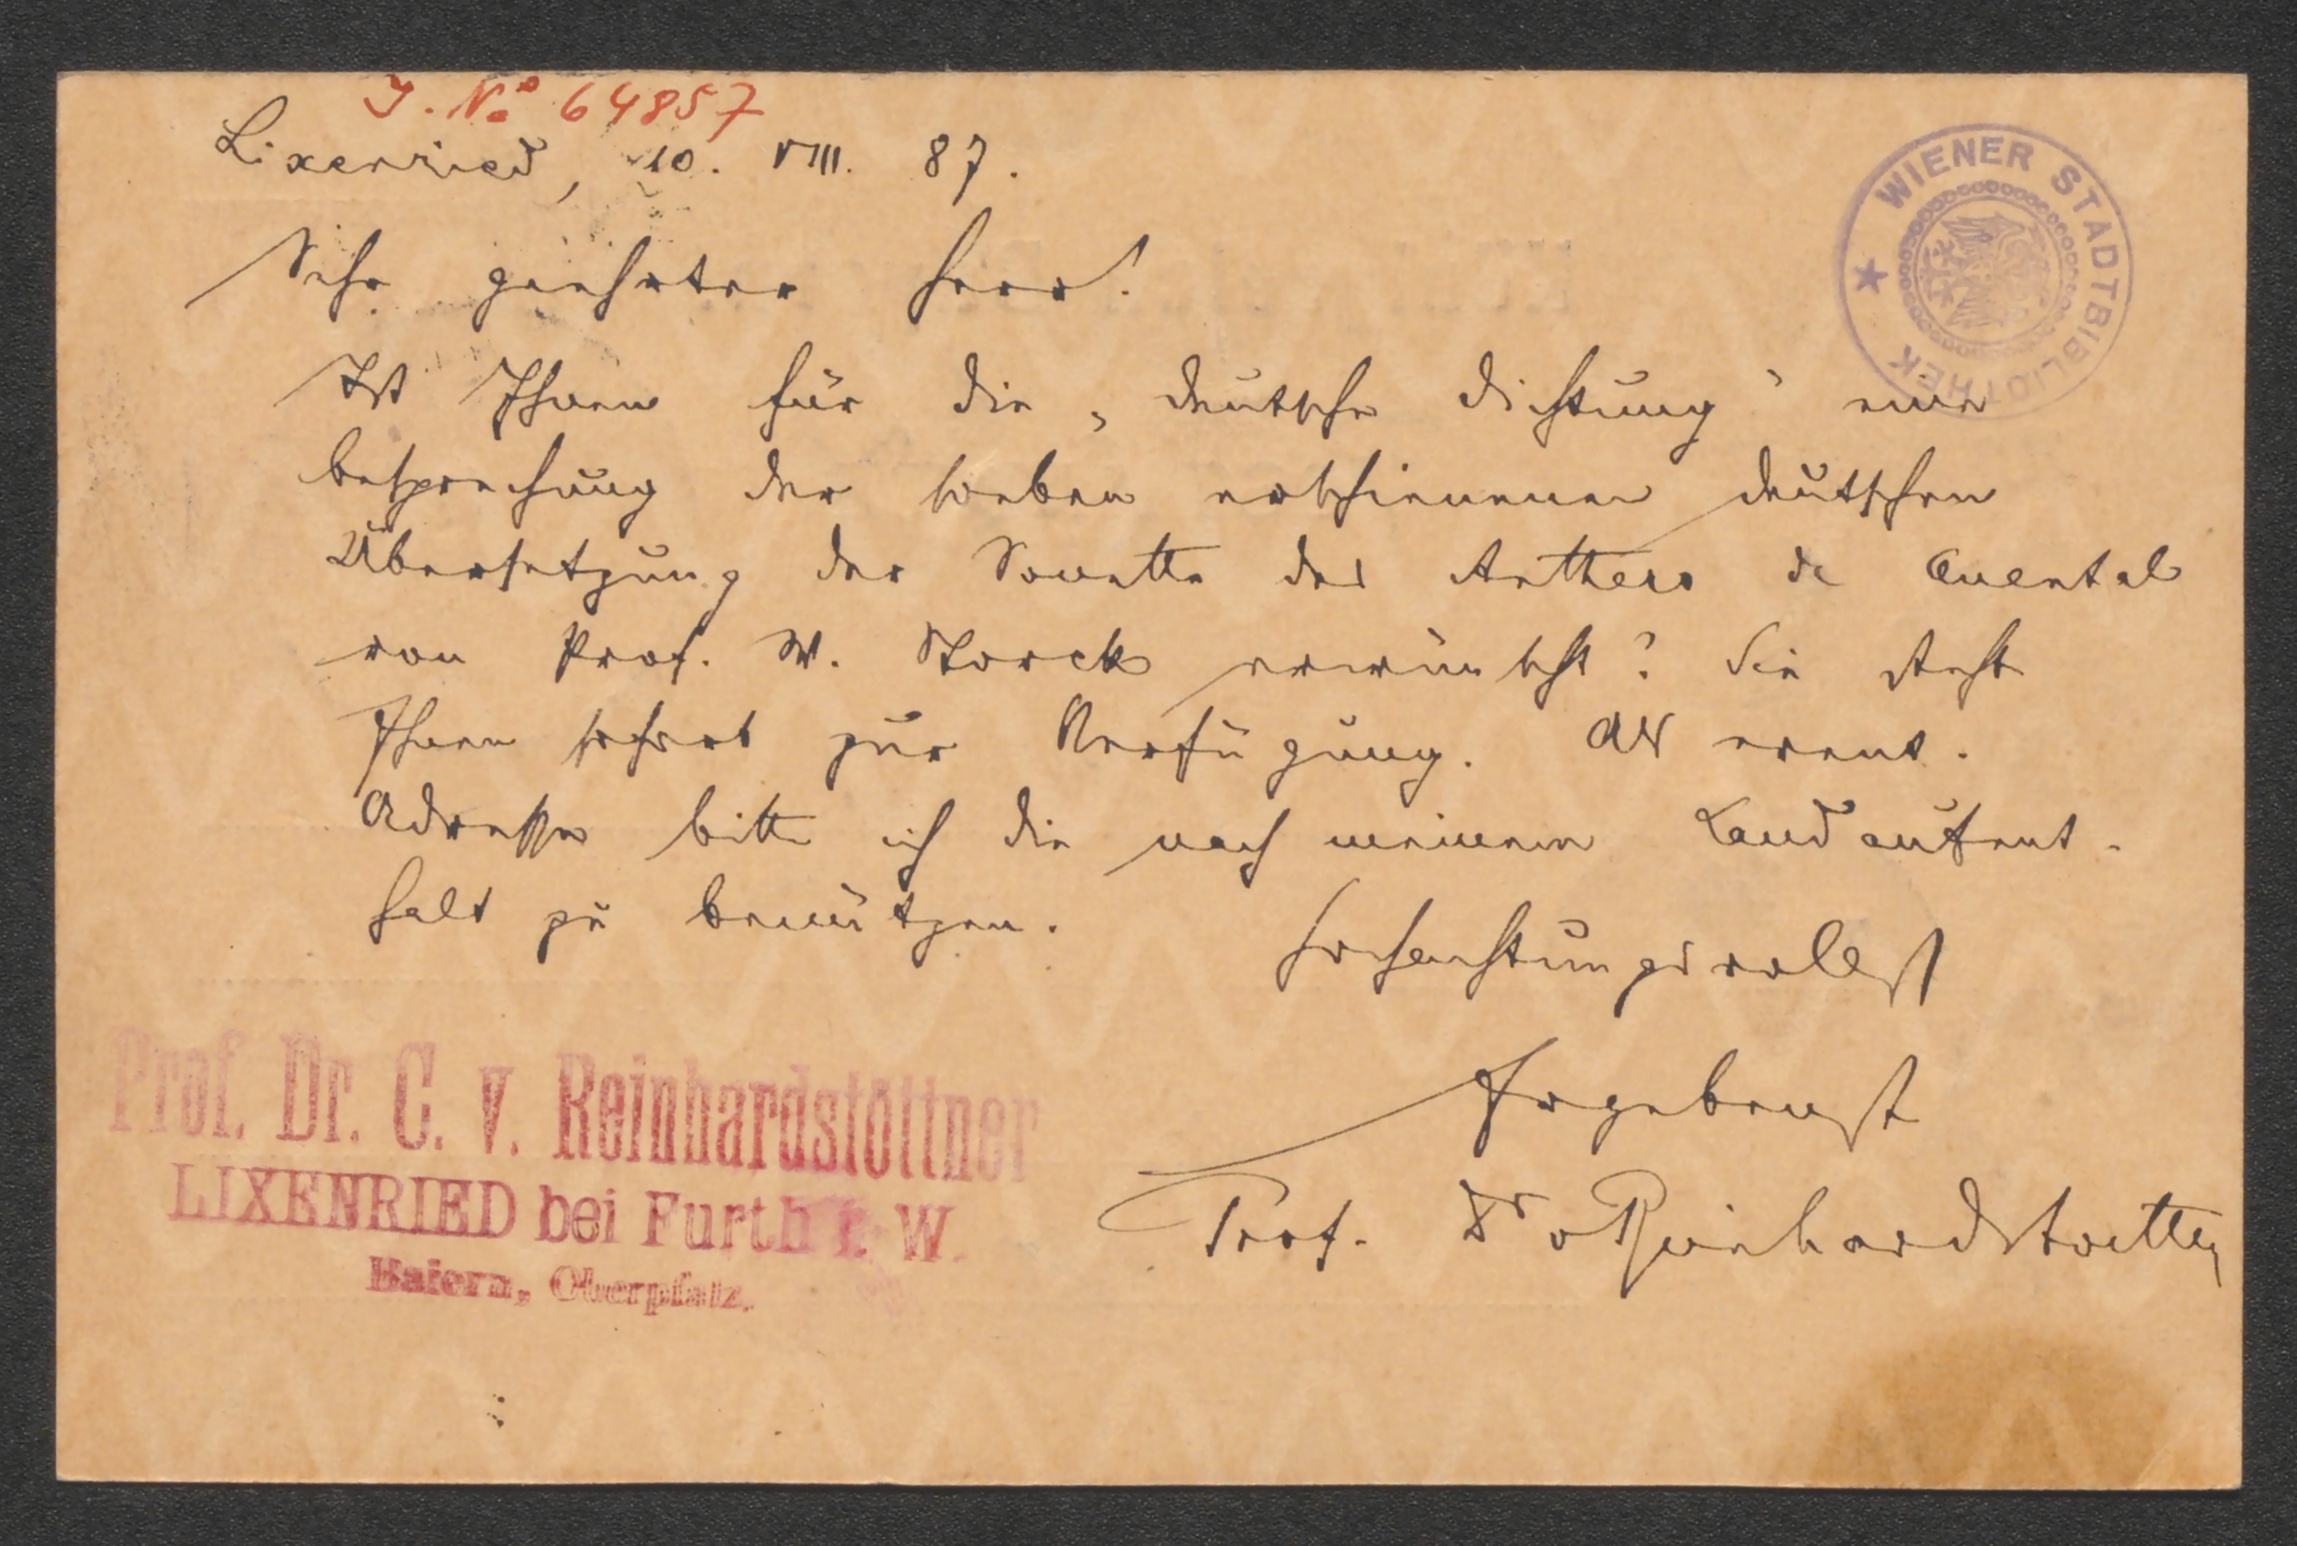 J. No 64857
Lixenried, 10. VIII. 87.
WIENER STADTBIBLIOTHEK
Sehr geehrter Herr!
Ist Ihnen für die „deutsche Dichtung" eine
besprechung der soeben erschienenen deutschen
Übersetzung der Sonette des Anthero de Quental
von Prof. W. Storck erwünscht? Sie steht
Ihnen sofort zur Verfügung. Als event.
Adresse bitte ich die nach meinem Landaufent-
halt zu benützen.
Hochachtungsvollst
Ergebenst
Prof. Dr v Reinhardstoettner
Prof. Dr. C. v. Reinhardstöttner
LIXENRIED bei Furth i. W.
Baiern, Oberpfalz.